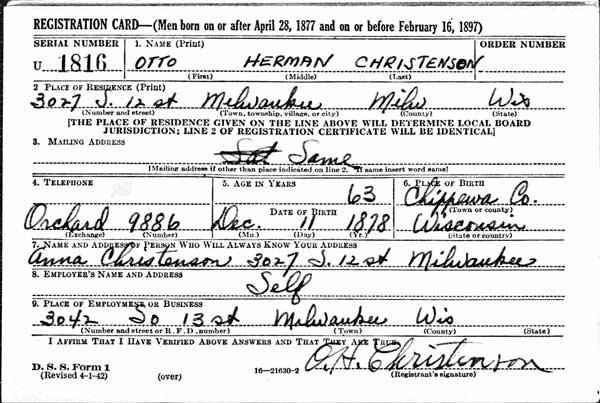 REGISTRATION CARD—(Men born on or after April 28, 1877 and on or before February 16, 1897)
SERIAL NUMBER 1. NAME (Print) ORDER NUMBER
U 1816 OTTO HERMAN CHRISTENSON
(First) (Middle) (Last)
2 PLACE OF RESIDENCE (Print)
3027 S. 12 st Milwaukee Milw Wis
(Number and street) (Town, township, village, or city) (County) (State)
[THE PLACE OF RESIDENCE GIVEN ON THE LINE ABOVE WILL DETERMINE LOCAL BOARD
JURISDICTION; LINE 2 OF REGISTRATION CERTIFICATE WILL BE IDENTICAL]
3. MAILING ADDRESS
Same
[Mailing address if other than place indicated on line 2. If same insert word same]
4. TELEPHONE 5. AGE IN YEARS 6. PLACE OF BIRTH
63 Chippewa Co.
DATE OF BIRTH (Town or county)
Orchard 9886 Dec. 11 1878 Wisconsin
(Exchange) (Number) (Mo.) (Day) (Yr.) (State or country)
7. NAME AND ADDRESS OF PERSON WHO WILL ALWAYS KNOW YOUR ADDRESS
Anna Christenson 3027 S. 12 st Milwaukee
8. EMPLOYER'S NAME AND ADDRESS
Self
9. PLACE OF EMPLOYMENT OR BUSINESS
3042 So 13 st Milwaukee Wis
(Number and street or R. F. D. number) (Town) (County) (State)
I AFFIRM THAT I HAVE VERIFIED ABOVE ANSWERS AND THAT THEY ARE TRUE.
O. H. Christenson
D. S. S. Form 1 16—21630-2 (Registrant's signature)
(Revised 4-1-42) (over)